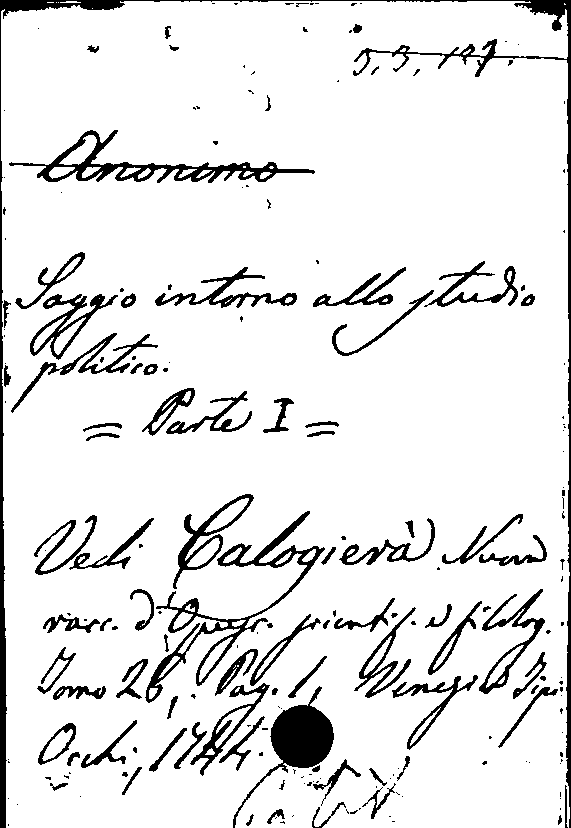 5. 3. 127.
Anonimo
Saggio intorno allo studio
politico.
= Parte I =
Vedi Calogierà Nuova
racc. d'Opusc. scientif. e filolog.
Tomo 26, Pag. 1, Venezia Tipi
Occhi, 1744.